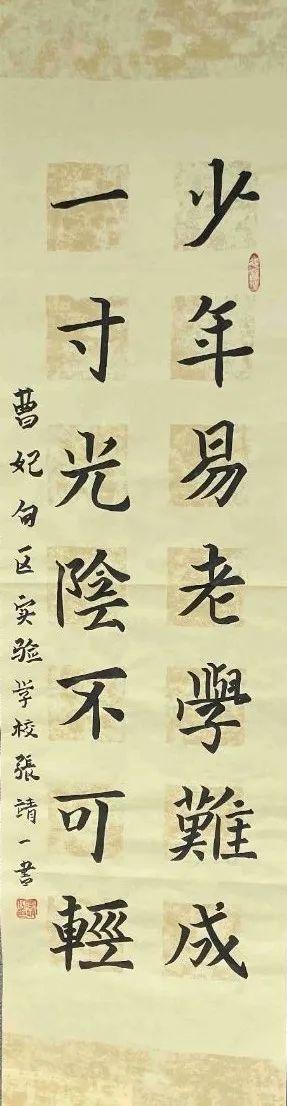 少年易老學難成
一寸光陰不可輕
曹妃甸区实验学校張靖一书